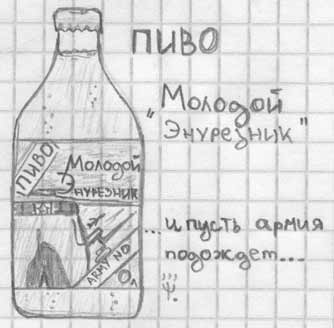 ПИВО
„Молодой
Энурезник"
ПИВО
Молодой
Энурезник
ARMY NO
0л
...и пусть армия
подождет...